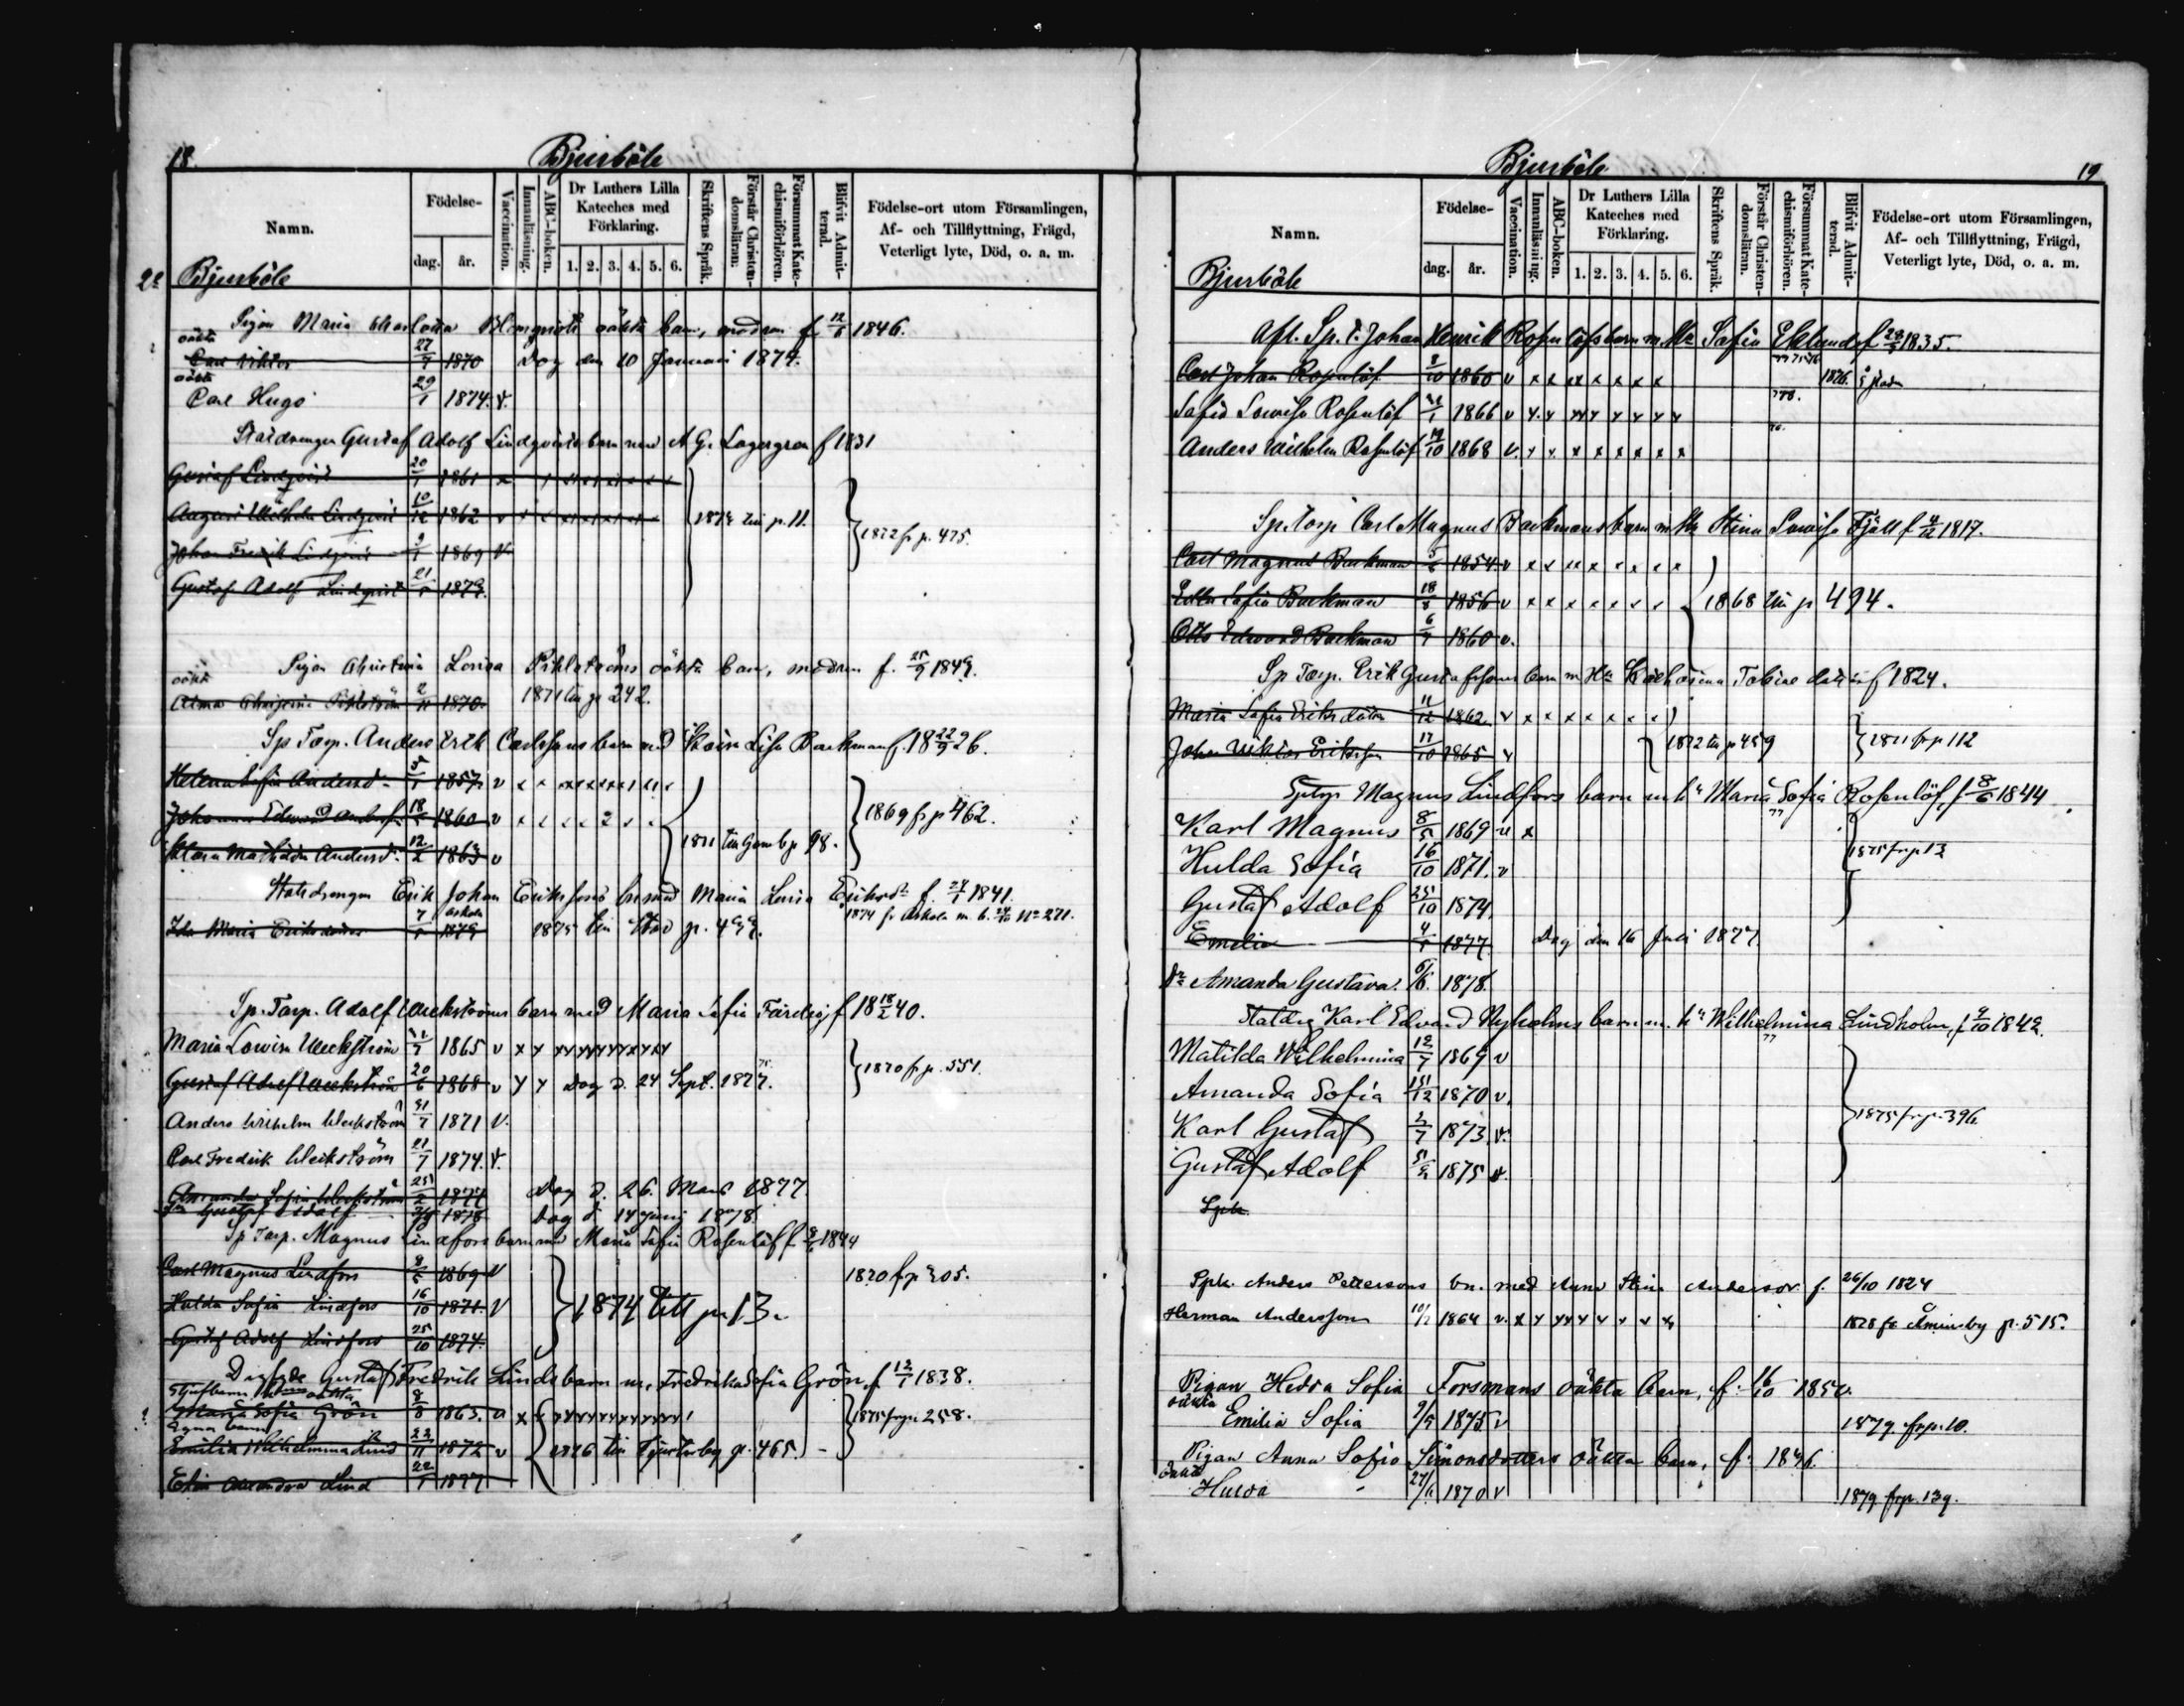 18.
Bjurböle
Namn.
Födelse-
dag. år.
Vaccination.
Innanläsning.
ABC-boken.
Dr Luthers Lilla Kateches med Förklaring.
1. 2. 3. 4. 5. 6.
Skriftens Språk.
Förstår Christendomsläran.
Försummat Katechismiförhören.
Blifvit Admitterad.
Födelse-ort utom Församlingen, Af- och Tillflyttning, Frägd, Veterligt lyte, Död, o. a. m.
Bjurböle
Pigan Maria Charlotta Blomqvists oäkta barn, modren f. 12/6 1846.
oäkta
Carl Viktor 27/7 1870 Dog den 10 Januari 1874.
oäkta
Carl Hugo 29/1 1874. v.
Staldrengen Gustaf Adolf Lindqvists barn med A G. Lagergren f 1831
Gustaf Lindqvist 20/1 1861
August Wilhelm Lindqvist 10/12 1862 v 1874 till p. 11. 1872 fr p. 475.
Johan Fredrik Lindqvist 1869 v
Gustaf Adolf Lindqvist 21 1873.
Pigan Christina Lovisa Pihlströms oäkta barn, modren f. 25/9 1849.
oäkta
Alma Pihlström 2/11 1870. 1871 till p 242.
Sp Torp. Anders Erik Carlssons barn med Karin Lisa Backman f. 18 22/9 26.
Helena Sofia Andersd. 5/1 1857 v
Johannes Edward Andersson 18 1860 v 1869 fr p 462.
Klara Mathilda Andersd. 12/2 1863 v 1871 till p 98.
Statdrengen Erik Johan Erikssons barn med Maria Lovisa Eriksd. f. 24/1 1841.
Ida Maria Eriksdotter 7 Askola 1873 1875 till p. 499. 1874 fr Askola m. b. No 271.
Sp. Torp. Adolf Weckströms barn med Maria Sofia Färdig f 18 18/2 40.
Maria Lovisa Weckström 1865 v
Gustaf Adolf Weckström 20/6 1868 v Dog d. 24 Sept. 1877. 1870 fr p. 551.
Anders Wilhelm Weckström 31/7 1871 v.
Carl Fredrik Weckström 21/7 1874. v.
Amanda Sofia Weckström 25/2 1877 Dog d. 26. Mars 1877
Gustaf Adolf 1878 Dog d 14 Juni 1878.
Sp Torp. Magnus Lindfors barn med Maria Sofia Rosenlöf f 8/6 1844
Carl Magnus Lindfors 8/5 1869 v 1870 fr p 305.
Hulda Sofia Lindfors 16/10 1871. v 1874 till p 13.
Gustaf Adolf Lindfors 25/10 1874.
Gustaf Fredrik Linds barn m. Fredrika Sofia Grön f 13/1 1838.
Styfbarn oäkta
Maria Sofia Grön 8/8 1863. v 1875 fr p 258.
Egna barn
Emilia Wilhelmina Lind 23/11 1872 v 1876 till Tjusterby p. 465.
Elin Alexandra Lind 22/1 1877
Bjurböle
19
Namn.
Födelse-
dag. år.
Vaccination.
Innanläsning.
ABC-boken.
Dr Luthers Lilla Kateches med Förklaring.
1. 2. 3. 4. 5. 6.
Skriftens Språk.
Förstår Christendomsläran.
Försummat Katechismiförhören.
Blifvit Admitterad.
Födelse-ort utom Församlingen, Af- och Tillflyttning, Frägd, Veterligt lyte, Död, o. a. m.
Bjurböle
Afl. Sp. T. Johan Henrik Rosenlöfs barn m. Ha Sofia Eklund f 28 1835.
Carl Johan Rosenlöf 8/10 1860 v 1876.
Sofia Lovisa Rosenlöf 1866 v
Anders Wilhelm Rosenlöf 19/10 1868 v.
Sp. Torp Carl Magnus Backmans barn m. Ha Stina Lovisa Fjäll f 4/12 1817.
Carl Magnus Backman 1854. v
Edla Sofia Backman 18 1856 v 1868 till p 494.
Otto Edward Backman 6/7 1860 v.
Sp Torp. Erik Gustafssons barn m Ha Katharina Tobiae dotter f 1824.
Maria Sofia Eriksdotter 11/12 1862 v
Johan Viktor Eriksson 17/10 1865 v 1872 till p 459 1871 fr p 112
Sptp Magnus Lindfors barn m. ha Maria Sofia Rosenlöf, f 8/6 1844
Karl Magnus 8/5 1869 v x
Hulda Sofia 16/10 1871. v 1875 fr p 13
Gustaf Adolf 25/10 1874.
Emelia 4 1877 Dog den 16 Juli 1877.
Dr Amanda Gustava. 1878.
Statdrg Karl Edvard Nyholms barn m. ha Wilhelmina Lindholm, f 9/10 1842.
Matilda Wilhelmina 12/7 1869 v
Amanda Sofia 1870 v.
Karl Gustaf 1873 v. 1875 fr p. 396.
Gustaf Adolf 1875 v.
Spk.
Spk. Anders Pettersons bn. med Anna Stina Andersdr f. 26/10 1824
Herman Andersson 1864 v. 1878 fr Åminsby p. 515.
Pigan Hedda Sofia Forsmans oäkta barn, f. 16/10 1850.
oäkta
Emilia Sofia 9/5 1875 v 1879 fr p. 10.
Pigan Anna Sofia Simonsdotters oäkta barn, f. 1846.
oäkta
Hulda 1870 v 1879 fr p. 139.